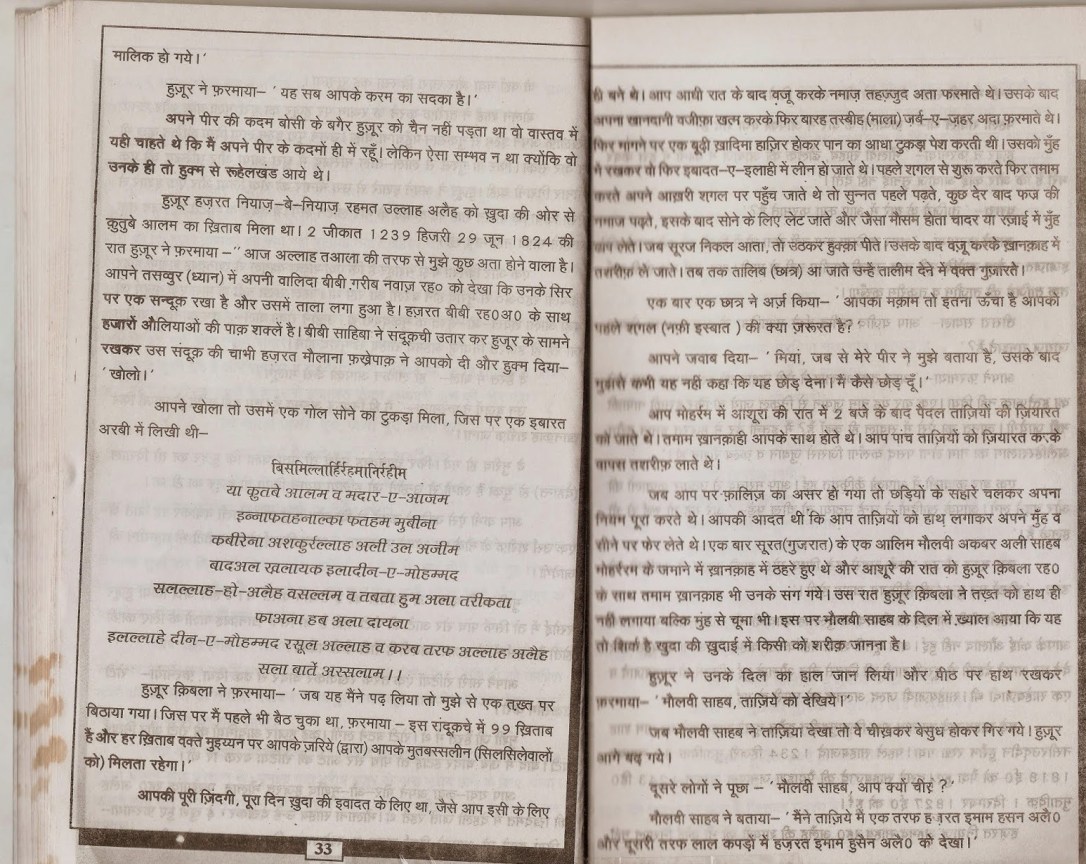 मालिक हो गये।'
हुज़ूर ने फ़रमाया– ' यह सब आपके करम का सदका है।'
अपने पीर की कदम बोसी के बगैर हुज़ूर को चैन नही पड़ता था वो वास्तव में
यही चाहते थे कि मैं अपने पीर के कदमों ही में रहूँ। लेकिन ऐसा सम्भव न था क्योंकि वो
उनके ही तो हुक्म से रूहेलखण्ड आये थे।
हुज़ूर हज़रत नियाज़-बे-नियाज़ रहमत उल्लाह अलैह को ख़ुदा की ओर से
क़ुतुबे आलम का ख़िताब मिला था। 2 जीकात 1239 हिजरी 29 जून 1824 की
रात हुज़ूर ने फ़रमाया –'' आज अल्लाह तआला की तरफ से मुझे कुछ अता होने वाला है।
आपने तसव्वुर (ध्यान) में अपनी वालिदा बीबी ग़रीब नवाज़ रह० को देखा कि उनके सिर
पर एक सन्दूक़ रखा है और उसमें ताला लगा हुआ है। हज़रत बीबी रह0अ0 के साथ
हजारों औलियाओं की पाक़ शक्लें है। बीबी साहिबा ने सदूक़ची उतार कर हुजूर के सामने
रखकर उस संदूक़ की चाभी हज़रत मौलाना फ़ख़ेपाक़ ने आपको दी और हुक्म दिया–
' खोलो।'
आपने खोला तो उसमें एक गोल सोने का टुकड़ा मिला, जिस पर एक इबारत
अरबी में लिखी थी–
बिसमिल्लाहिर्रहमानिर्रहीम
या कुतबे आलम व मदार-ए-आजम
इन्नाफतहनाल्का फतहम मुबीना
कबीरेना अशफ़ुर्रल्लाह अली उल अजीम
बादअल ख़लायक इलादीन-ए-मोहम्मद
सलल्लाह-हो-अलैह वसल्लम व तबता हुम अला तरीकता
फाअना हब अला दायना
इलल्लाहे दीन-ए-मोहम्मद रसूल अल्लाह व करब तरफ अल्लाह अलैह
सला बातें अस्सलाम।।
हुज़ूर क़िबला ने फ़रमाया– ' जब यह मैंने पढ़ लिया तो मुझे से एक तख़्त पर
बिठाया गया। जिस पर मैं पहले भी बैठ चुका था, फ़रमाया – इस संदूक़चे में 99 ख़िताब
हैं और हर ख़िताब वक्ते मुइय्यन पर आपके ज़रिये (द्वारा) आपके मुतबस्सलीन (सिलसिलेवालों
को) मिलता रहेगा।'
आपकी पूरी ज़िंदगी, पूरा दिन ख़ुदा की इवादत के लिए था, जैसे आप इसी के लिए
33
ही बने थे। आप आधी रात के बाद वज़ू करके नमाज़ तहज़्जुद अता फरमाते थे। उसके बाद
अपना खानदानी वजीफ़ा खत्म करके फिर बारह तस्बीह (माला) ज़र्ब-ए-ज़हर अदा फ़रमाते थे।
फिर मांगने पर एक बूढ़ी ख़ादिमा हाज़िर होकर पान का आधा टुकड़ा पेश करती थी। उसको मुँह
में रखकर वो फिर इबादत-ए-इलाही में लीन हो जाते थे। पहले शग़ल से शुरू करते फिर तमाम
करते अपने आख़री शग़ल पर पहुँच जाते थे तो सुन्नत पहले पढ़ते, कुछ देर बाद फज की
नमाज पढ़ते, इसके बाद सोने के लिए लेट जाते और जैसा मौसम होता चादर या रज़ाई में मुँह
ढांप लेते। जब सूरज निकल आता, तो उठकर हुक्क़ा पीते। उसके बाद वज़ू करके ख़ानक़ाह में
तशरीफ़ ले जाते। तब तक तालिब (छात्र) आ जाते उन्हें तालीम देने में वक्त गुज़ारते।
एक बार एक छात्र ने अर्ज़ किया– ' आपका मक़ाम तो इतना ऊंचा है आपको
पहले शगल (नफ़ी इस्बात ) की क्या ज़रूरत है?'
आपने जवाब दिया– ' मियां, जब से मेरे पीर ने मुझे बताया है, उसके बाद
मुझसे कभी यह नही कहा कि यह छोड़ देना। मैं कैसे छोड़ दूँ।'
आप मोहर्रम में आशूरा की रात में 2 बजे के बाद पैदल ताज़ियों की ज़ियारत
को जाते थे। तमाम ख़ानक़ाही आपके साथ होते थे। आप पांच ताज़ियों को ज़ियारत करके
वापस तशरीफ़ लाते थे।
जब आप पर फ़ालिज़ का असर हो गया तो छड़ियों के सहारे चलकर अपना
नियम पूरा करते थे। आपकी आदत थी कि आप ताज़ियों को हाथ लगाकर अपने मुँह व
सीने पर फेर लेते थे। एक बार सूरत(गुजरात) के एक आलिम मौलवी अकबर अली साहब
मोहर्ररम के जमाने में ख़ानक़ाह में ठहरे हुए थे और आशूरे की रात को हुज़ूर क़िबला रह0
के साथ तमाम ख़ानक़ाह भी उनके संग गये। उस रात हुज़ूर क़िबला ने तख़्त को हाथ ही
नही लगाया बल्कि मुंह से चूमा भी। इस पर मौलबी साहब के दिल में ख्याल आया कि यह
तो शिर्क है खुदा की ख़ुदाई में किसी को शरीक़ जानना है।
हुज़ूर ने उनके दिल का हाल जान लिया और पीठ पर हाथ रखकर
फ़रमाया– ' मौलवी साहब, ताज़िये को देखिये।'
जब मौलबी साहब ने ताज़िया देखा तो वे चीख़कर बेसुध होकर गिर गये। हुज़ूर
आगे बढ़ गये।
दूसरे लोगों ने पूछा – ' मौलवी साहब, आप क्यों चीख़े ?'
मौलवी साहब ने बताया– ' मैंने ताज़िये में एक तरफ हज़रत इमाम हसन अलै0
और दूसरी तरफ लाल कपड़ों में हज़रत इमाम हुसैन अलै0 को देखा।'